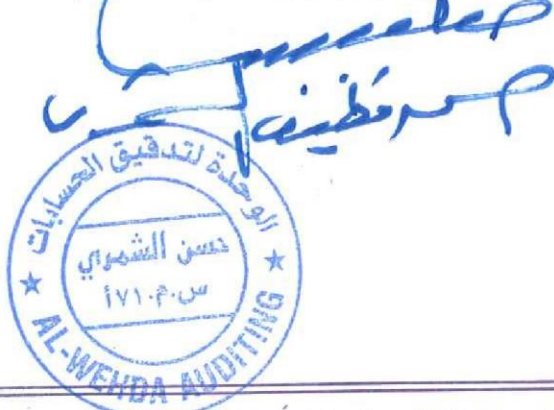 الوحدة لتدقيق الحسابات
حسن الشمري
س.م.٧١أ
AL-WEHDA AUDITING